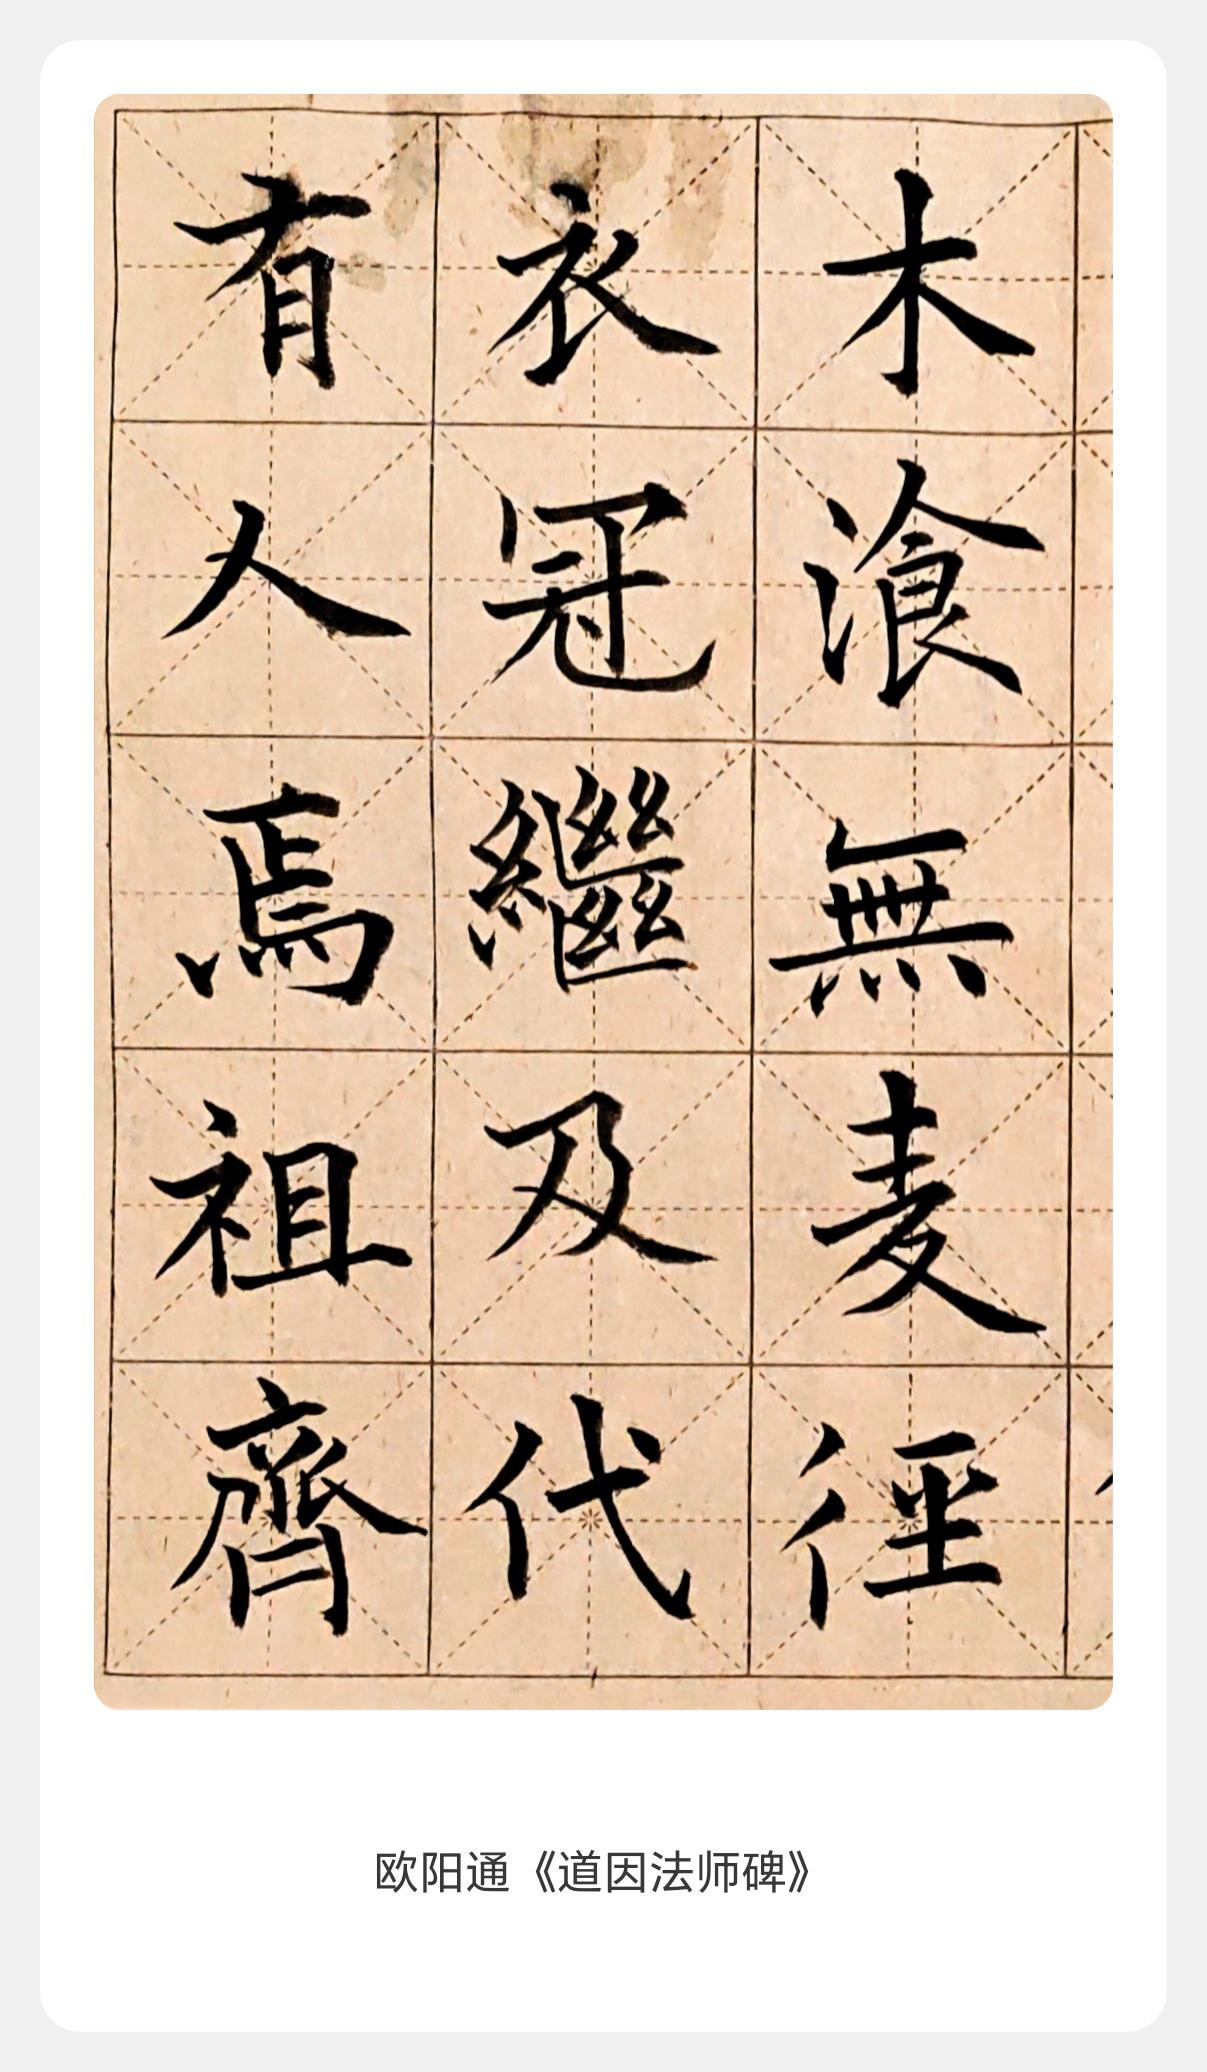 木湌無麦徑
衣冠繼及代
有人焉祖齊
欧阳通《道因法师碑》